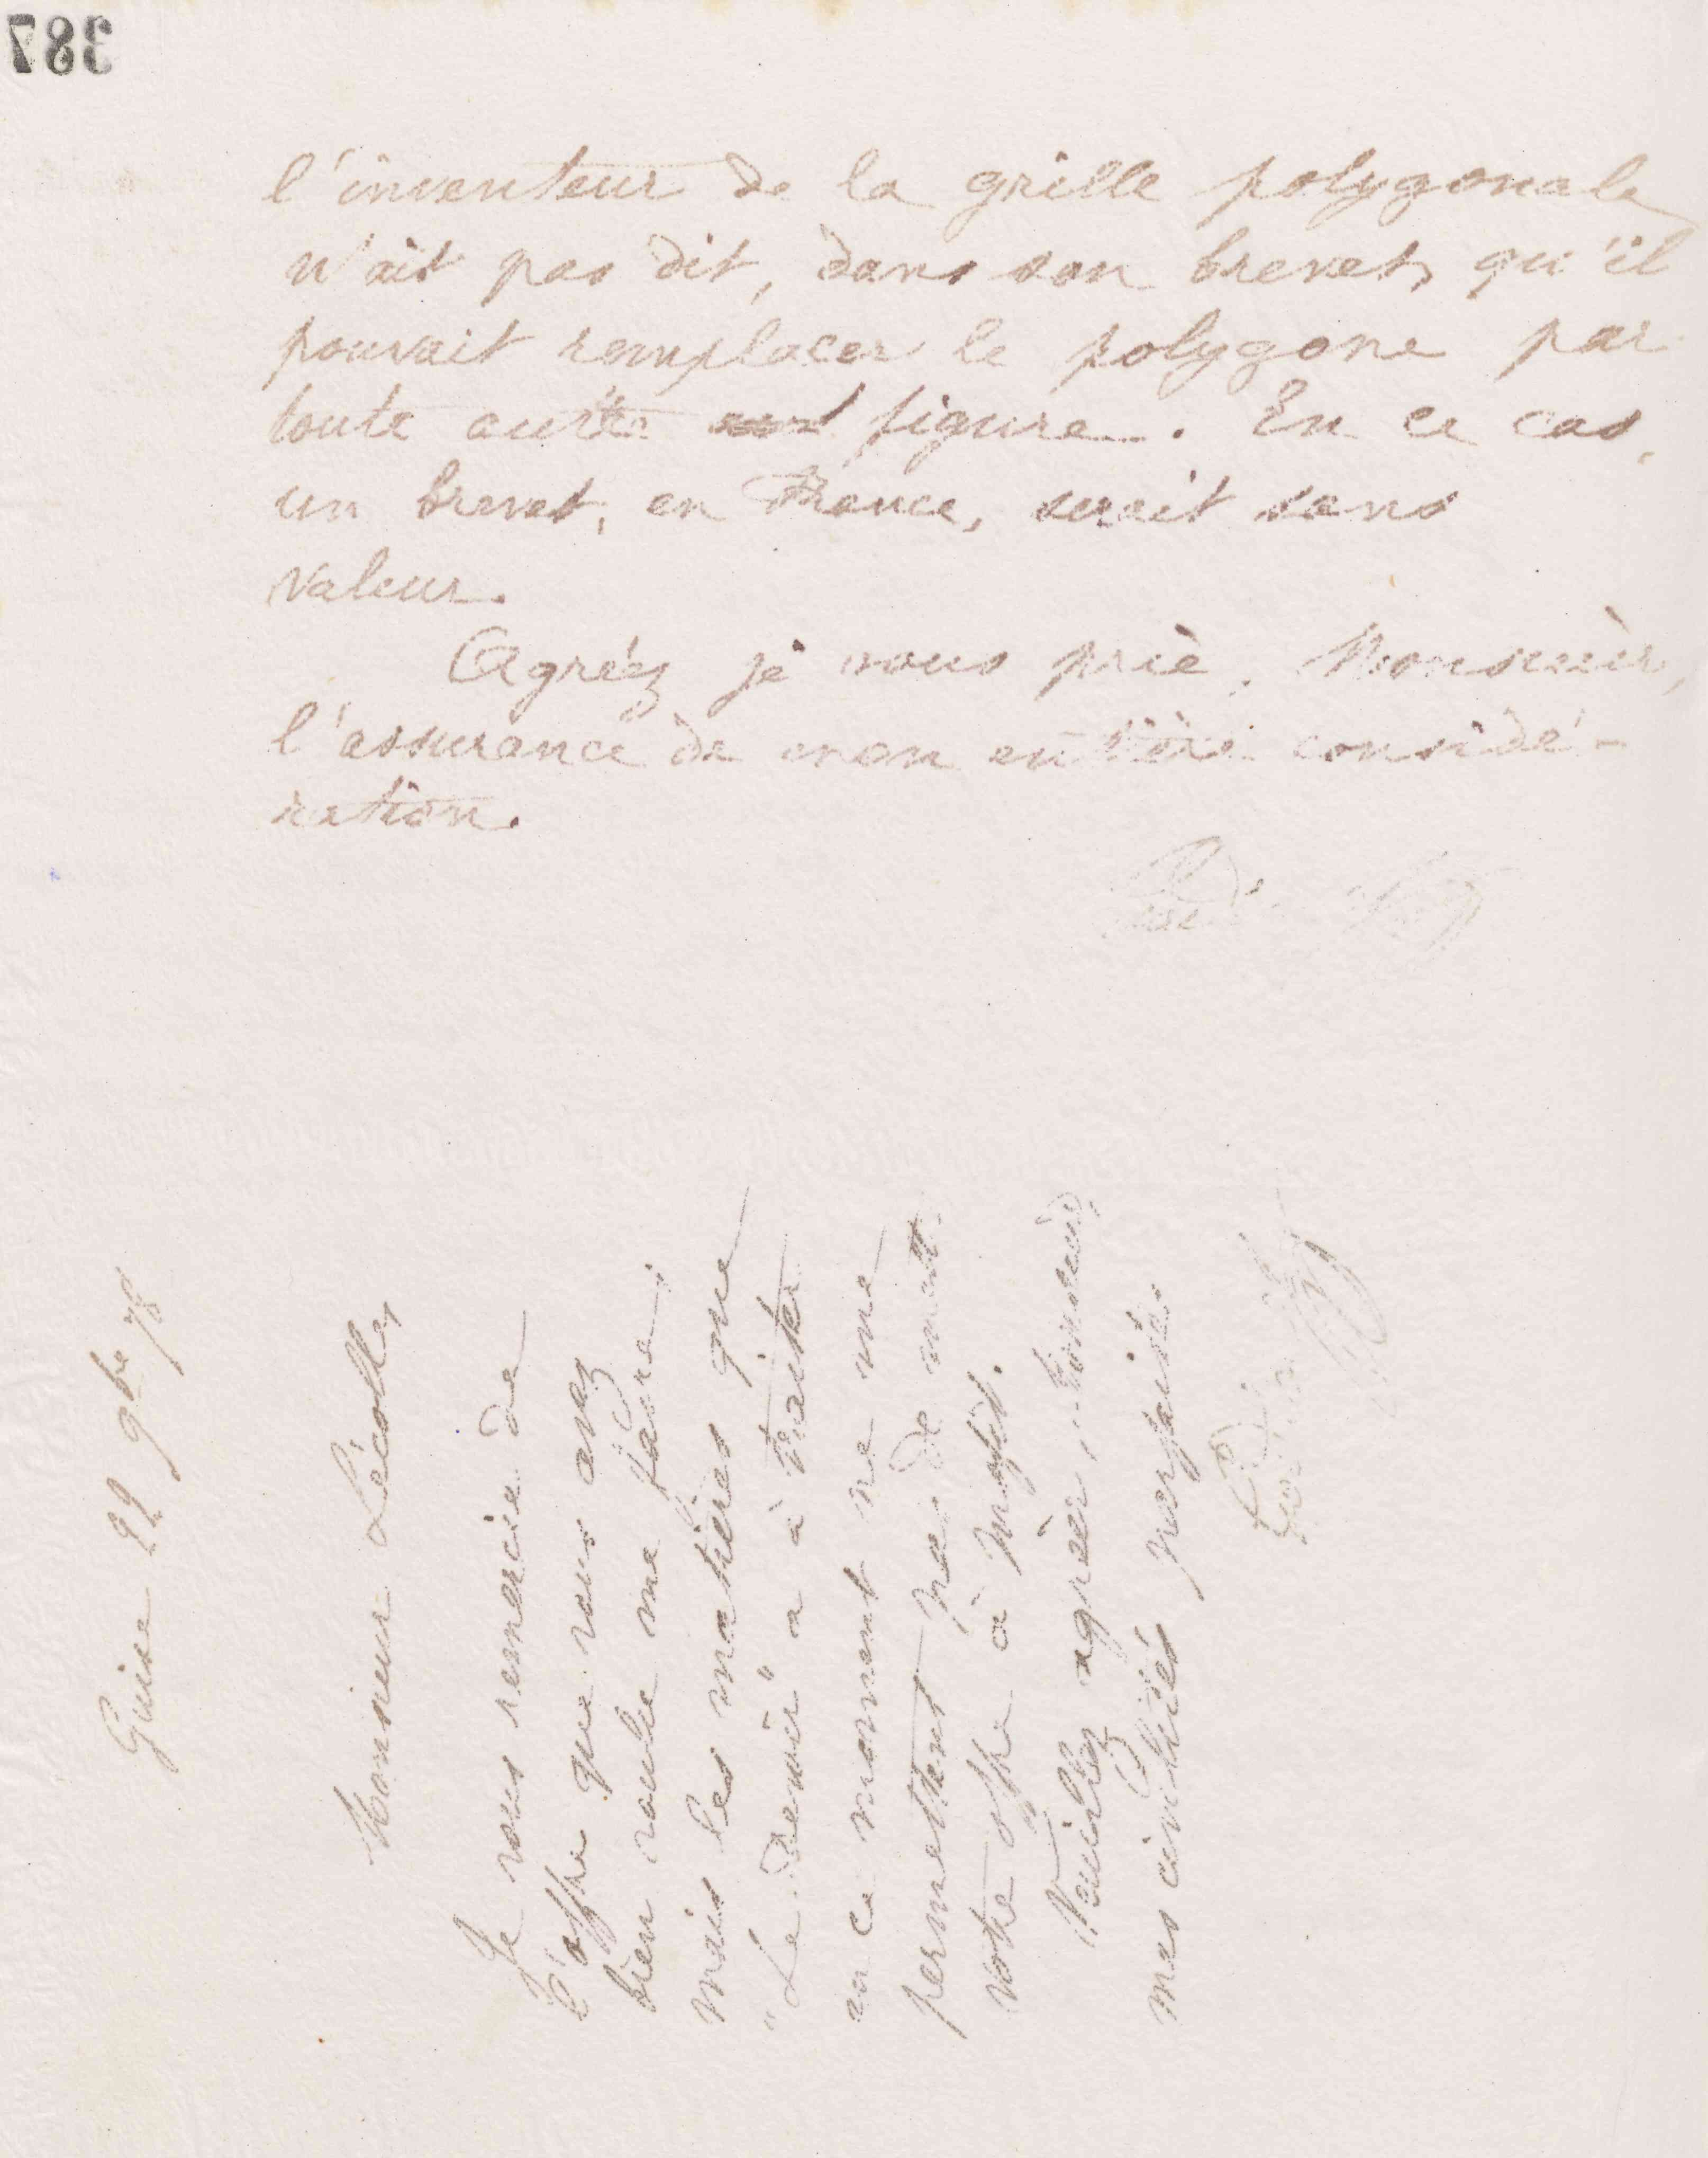 387
l'inventeur de la grille polygonale
n'ait pas dit, dans son brevet, qu'il
pouvait remplacer le polygone par
toute autre figure. En ce cas,
un brevet, en France, serait sans
valeur.
Agréez je vous prie, Monsieur,
l'assurance de mon entière considé-
ration.
Godin
Guise 29 9bre 78
Monsieur Lécolle,
Je vous remercie de
l'offre que vous avez
bien voulu me faire;
mais les matières que
"Le Devoir" a à traiter
en ce moment ne me
permettent pas de mettre
votre offre à profit.
Veuillez agréer, Monsieur,
mes civilités parfaites.
Godin